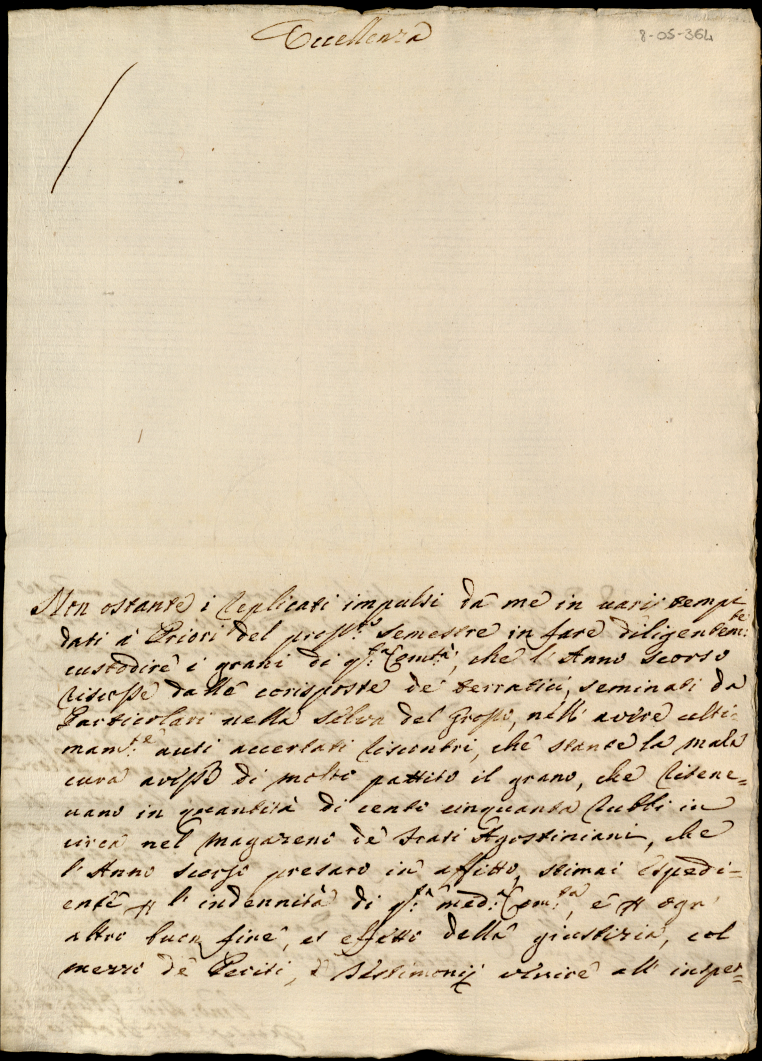 Eccellenza
8-05-364
Non ostante i replicati impulsi da me in varij tempi
dati a Priori del pross.to semestre in fare diligentem:te
custodire i grani di q.ta Com.tà, che l'Anno scorso
riscosse dalle corisposte de terratici, seminati da
Particolari nella Selva del Grosso, nell'avere ulti-
mam.te auti accertati riscontri, che stante la mala
cura avesse di molto patito il grano, che ritene-
vano in quantità di cento cinquanta rubbi in
circa nel magazeno de Frati Agostiniani, che
l'Anno scorso presaro in affitto, stimai espedi-
ente p l'indennità di q.ta med.a Com.tà, e p ogn'
altro buon fine, et effetto della giustizia, col
mezzo de Periti, e Testimonij venire all'inspez-